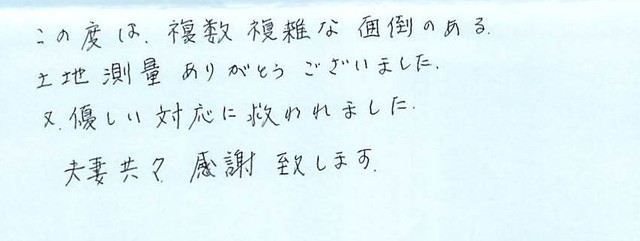 この度は、複数 複雑な 面倒のある.
土地 測量 ありがとう ございました.
又. 優しい 対応に 救われました.
夫妻共々 感謝 致します.